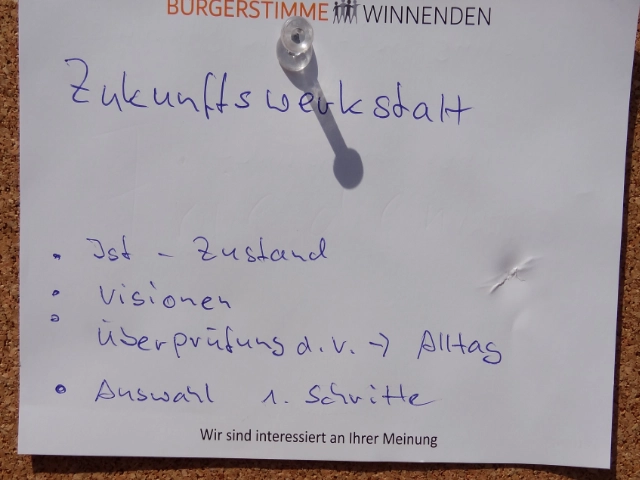 BÜRGERSTIMME WINNENDEN
Zukunftswerkstatt
• Ist - Zustand
• Visionen
• Überprüfung d. V. → Alltag
• Auswahl 1. Schritte
Wir sind interessiert an Ihrer Meinung